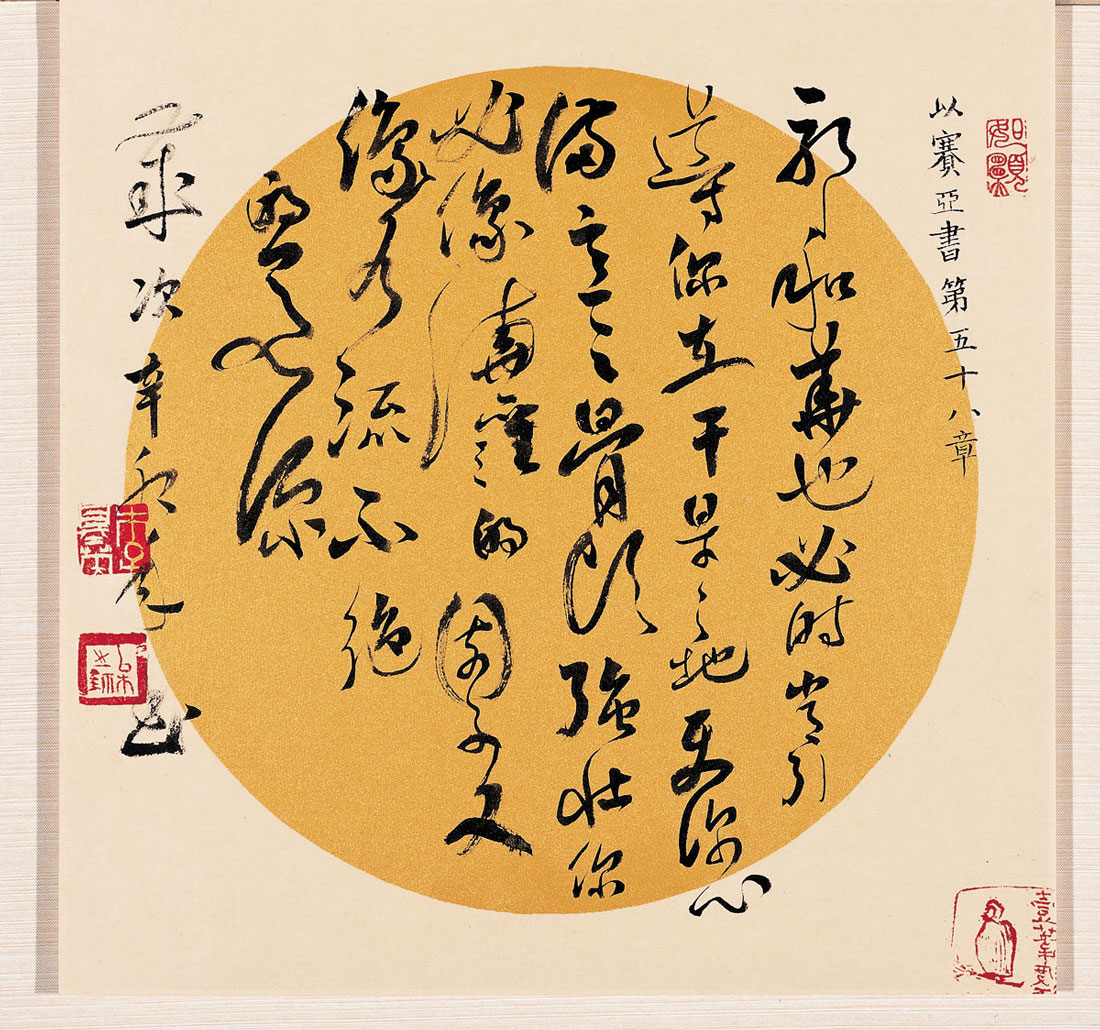 以賽亞書第五十八章
耶和華也必時常引
導你在干旱之地使你心
滿意足骨頭強壯你
必像澆灌的園子又
像水流不絕
的泉源
歲次辛卯